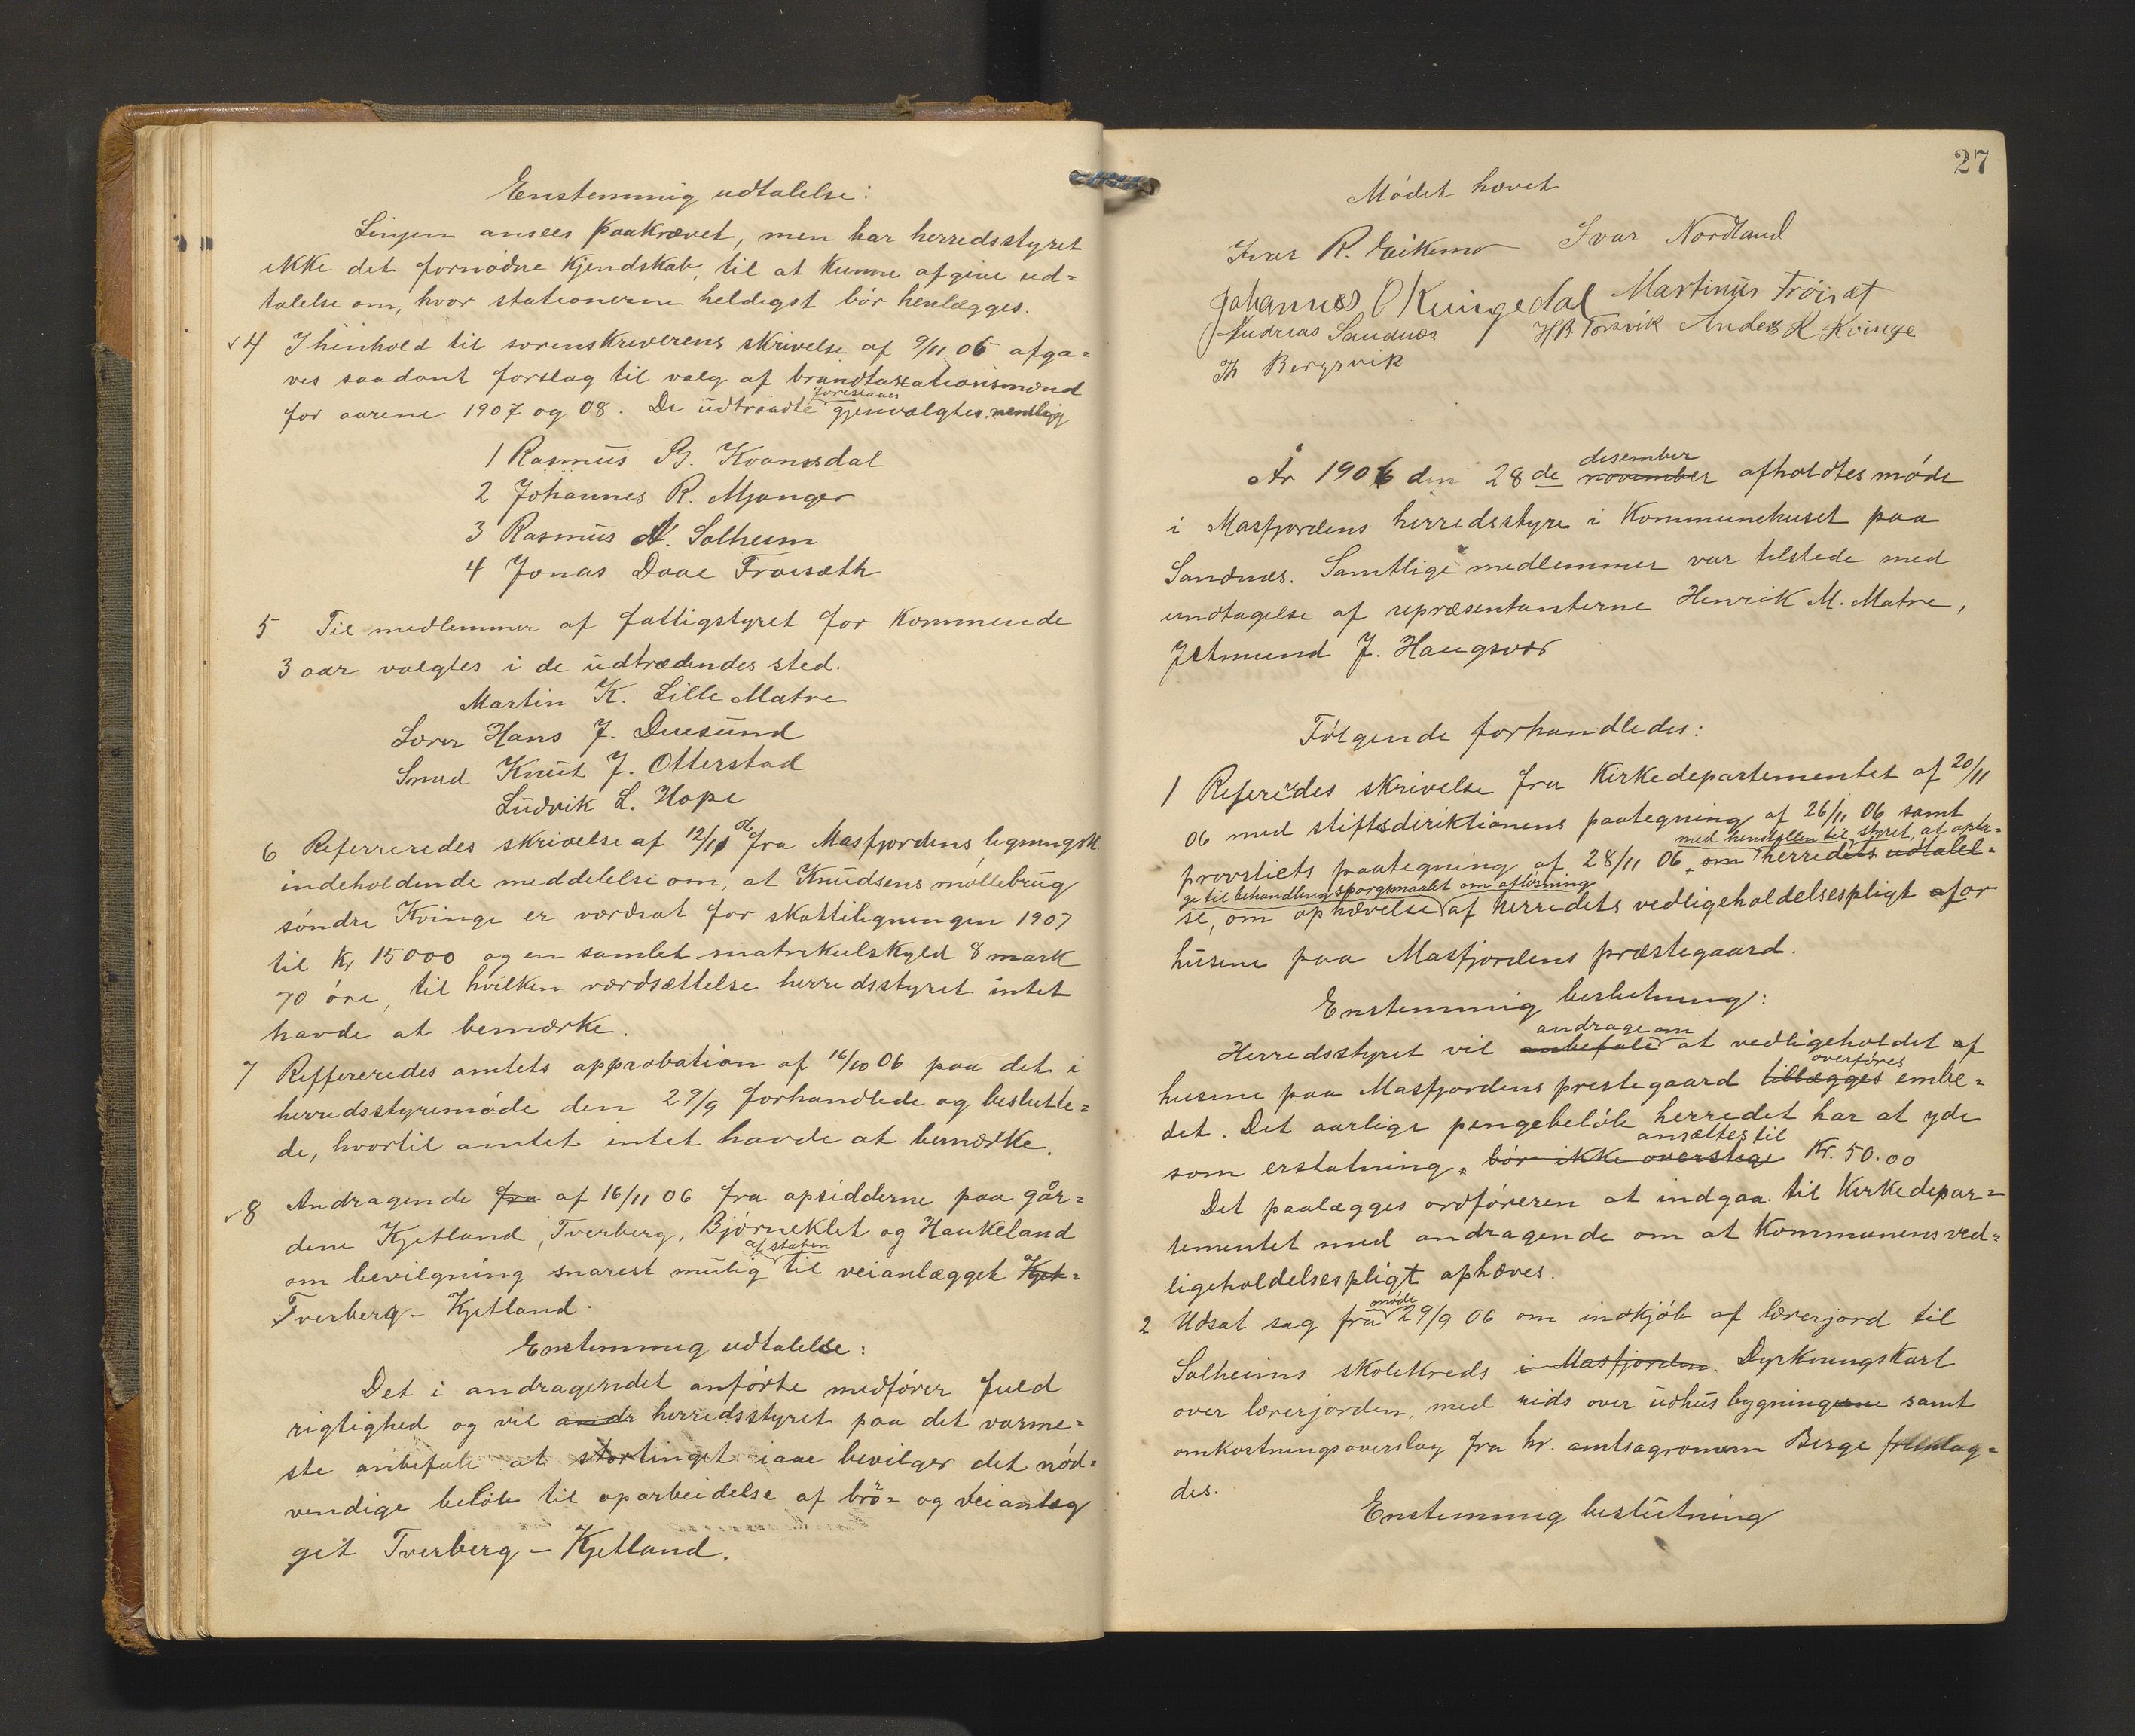 Enstemmig udtalelse:
Linjen ansees paakrævet, men har herredsstyret
ikke det fornødne kjendskab, til at kunne afgive ud=
talelse om, hvor stationerne heldigst bør henlægges.
✓4 I henhold til sorenskriverens skrivelse af 9/11 06 afga=
ves saadant forslag til valg af brandtaxationsmænd
for aarene 1907 og 08. De udtraadte foreslaaes gjenvalgtes. nemlig
1 Rasmus B. Kvamsdal
2 Johannes R. Mjanger
3 Rasmus N. Solheim
4 Jonas Daae Frøisæth
5 Til medlemmer af fattigstyret for kommende
3 aar valgtes i de udtrædendes sted.
Martin K. Lille Matre
Lærer Hans J. Duesund
Smed Knut J. Otterstad
Ludvik L. Hope
6 Referreredes skrivelse af 12/11 d.a. fra Masfjordens ligningsk
indeholdende meddelelse om, at Knudsens møllebrug
søndre Kvinge er værdsat for skatteligningen 1907
til kr 15000 og en samlet matrikulskyld 8 mark
70 øre, til hvilken værdsættelse herredsstyret intet
havde at bemærke.
7 Reffereredes amtets approbation af 16/10 06 paa det i
herredsstyremøde den 29/9 forhandlede og beslutte=
de, hvortil amtet intet havde at bemærke.
✓8 Andragende fra af 16/11 06 fra opsidderne paa går=
dene Kjetland, Tverberg, Bjørneklet og Haukeland
om bevilgning snarest mulig af staten til veianlægget Kjet=
Tverberg – Kjetland.
Enstemmig udtalelse:
Det i andragendet anførte medfører fuld
rigtighed og vil andr herredsstyret paa det varme=
ste anbefale at stortinget iaar bevilger det nød=
vendige beløb til oparbeidelse af bro= og veianlæg
get Tverberg – Kjetland.
27
Mødet hævet
Ivar R. Eikemo Ivar Nordland
Johannes O Kvingedal Martinus Frøisæt
Andreas Sandnes H B Torsvik Anders K Kvinge
Th Bergsvik
År 1906 den 28de november desember afholdtes møde
i Masfjordens herredsstyre i kommunehuset paa
Sandnes. Samtlige medlemmer var tilstede med
undtagelse af repræsentanterne Henrik M. Matre,
Jetmund J. Haugsvær
Følgende forhandledes:
1 Refereredes skrivelse fra Kirkedepartementet af 20/11
06 med stiftsdirektionens paategning af 26/11 06 samt
provstiets paategning af 28/11 06, om med henstillen til herredets styret, at opta= udtalel=
ge til behandling spørgsmaalet om afløsning
se, om ophævelse af herredets vedligeholdelsespligt afor
husene paa Masfjordens præstegaard.
Enstemmig beslutning:
Herredsstyret vil anbefale andrage om at vedligeholdet af
husene paa Masfjordens prestegaard tillægges overføres embe=
det. Det aarlige pengebeløb herredet har at yde
som erstatning, bør ikke overstige ansættes til Kr. 50.00
Det paalægges ordføreren at indgaa til Kirkedepar=
tementet med andragende om at kommunens ved=
ligeholdelsespligt ophæves.
2 Udsat sag fra møde 29/9 06 om indkjøb af lærerjord til
Solheims skolekreds i Masfjorden. Dyrkningskart
over lærerjorden, med rids over udhusbygningerne samt
omkostningsoverslag fra hr. amtsagronom Berge fremlag=
des.
Enstemmig beslutning